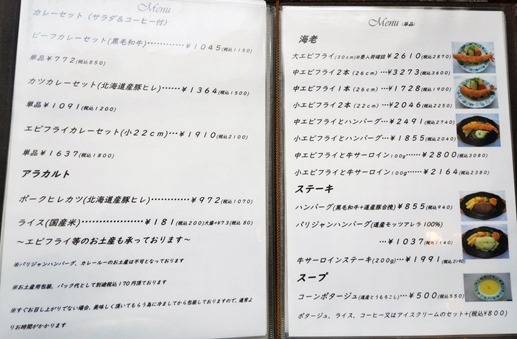 Menu
カレーセット(サラダ&コーヒー付)
ビーフカレーセット(黒毛和牛)…¥1045(税込1150)
単品¥772(税込850)
カツカレーセット(北海道産豚ヒレ)……¥1364(税込1500)
単品¥1091(税込1200)
エビフライカレーセット(小22cm)…¥1910(税込2100)
単品¥1637(税込1800)
アラカルト
ポークヒレカツ(北海道産豚ヒレ)………¥972(税込1070)
ライス(国産米)……¥181(税込200)大盛+¥73(税込80)
~エビフライ等のお土産も承っております~
※パリジャンハンバーグ、カレールーのお土産は不可となっております
※お土産用包装、パック代として別途税込170円頂ております
※すぐお召し上がりでない場合、美味しく頂いてもらう為に冷ましてから包装しておりますので、通常よりお時間がかかります
Menu(単品)
海老
大エビフライ(30cm)※要入荷確認¥2610(税込2870)
中エビフライ2本(26cm)…¥3273(税込3600)
中エビフライ1本(26cm)…¥1728(税込1900)
小エビフライ2本(22cm)…¥2046(税込2250)
中エビフライとハンバーグ…¥2491(税込2740)
小エビフライとハンバーグ…¥1855(税込2040)
中エビフライと牛サーロイン100g……¥2800(税込3080)
小エビフライと牛サーロイン(100g)……¥2164(税込2380)
ステーキ
ハンバーグ(黒毛和牛+道産豚合挽)……¥855(税込940)
パリジャンハンバーグ(道産モッツアレラ100%)
…¥1037(税込1140)
牛サーロインステーキ(200g)…¥1991(税込2190)
スープ
コーンポタージュ(道産とうもろこし)…¥500(税込550)
ポタージュ、ライス、コーヒー又はアイスクリームのセット+(税込¥800)